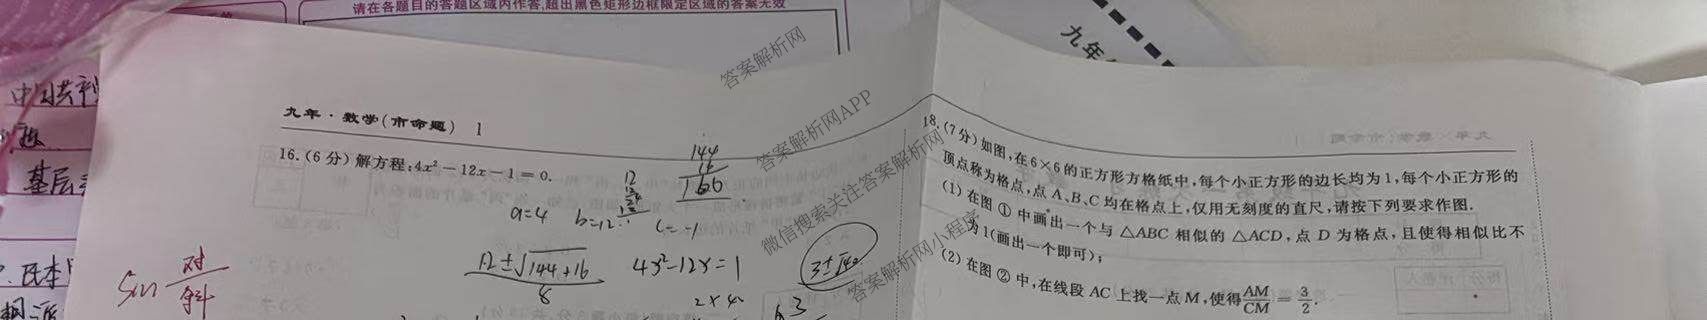 请在各题目的答题区域内作答,超出黑色矩形边框限定区域的答案无效
九年
基层
九年·数学(市命题) 1
16.(6分)解方程:4x²－12x－1＝0.
a=4 b=-12 c=-1
144
16
160
12±√144+16
8
4x²-12x=1
3±√
sin 对
斜
18.(7分)如图,在6×6的正方形方格纸中,每个小正方形的边长均为1,每个小正方形的
顶点称为格点,点A、B、C均在格点上,仅用无刻度的直尺,请按下列要求作图.
(1)在图①中画出一个与△ABC相似的△ACD,点D为格点,且使得相似比不
为1(画出一个即可);
(2)在图②中,在线段AC上找一点M,使得AM/CM＝3/2.
答案解析网
答案解析网APP
微信搜索关注答案解析网
答案解析网小程序